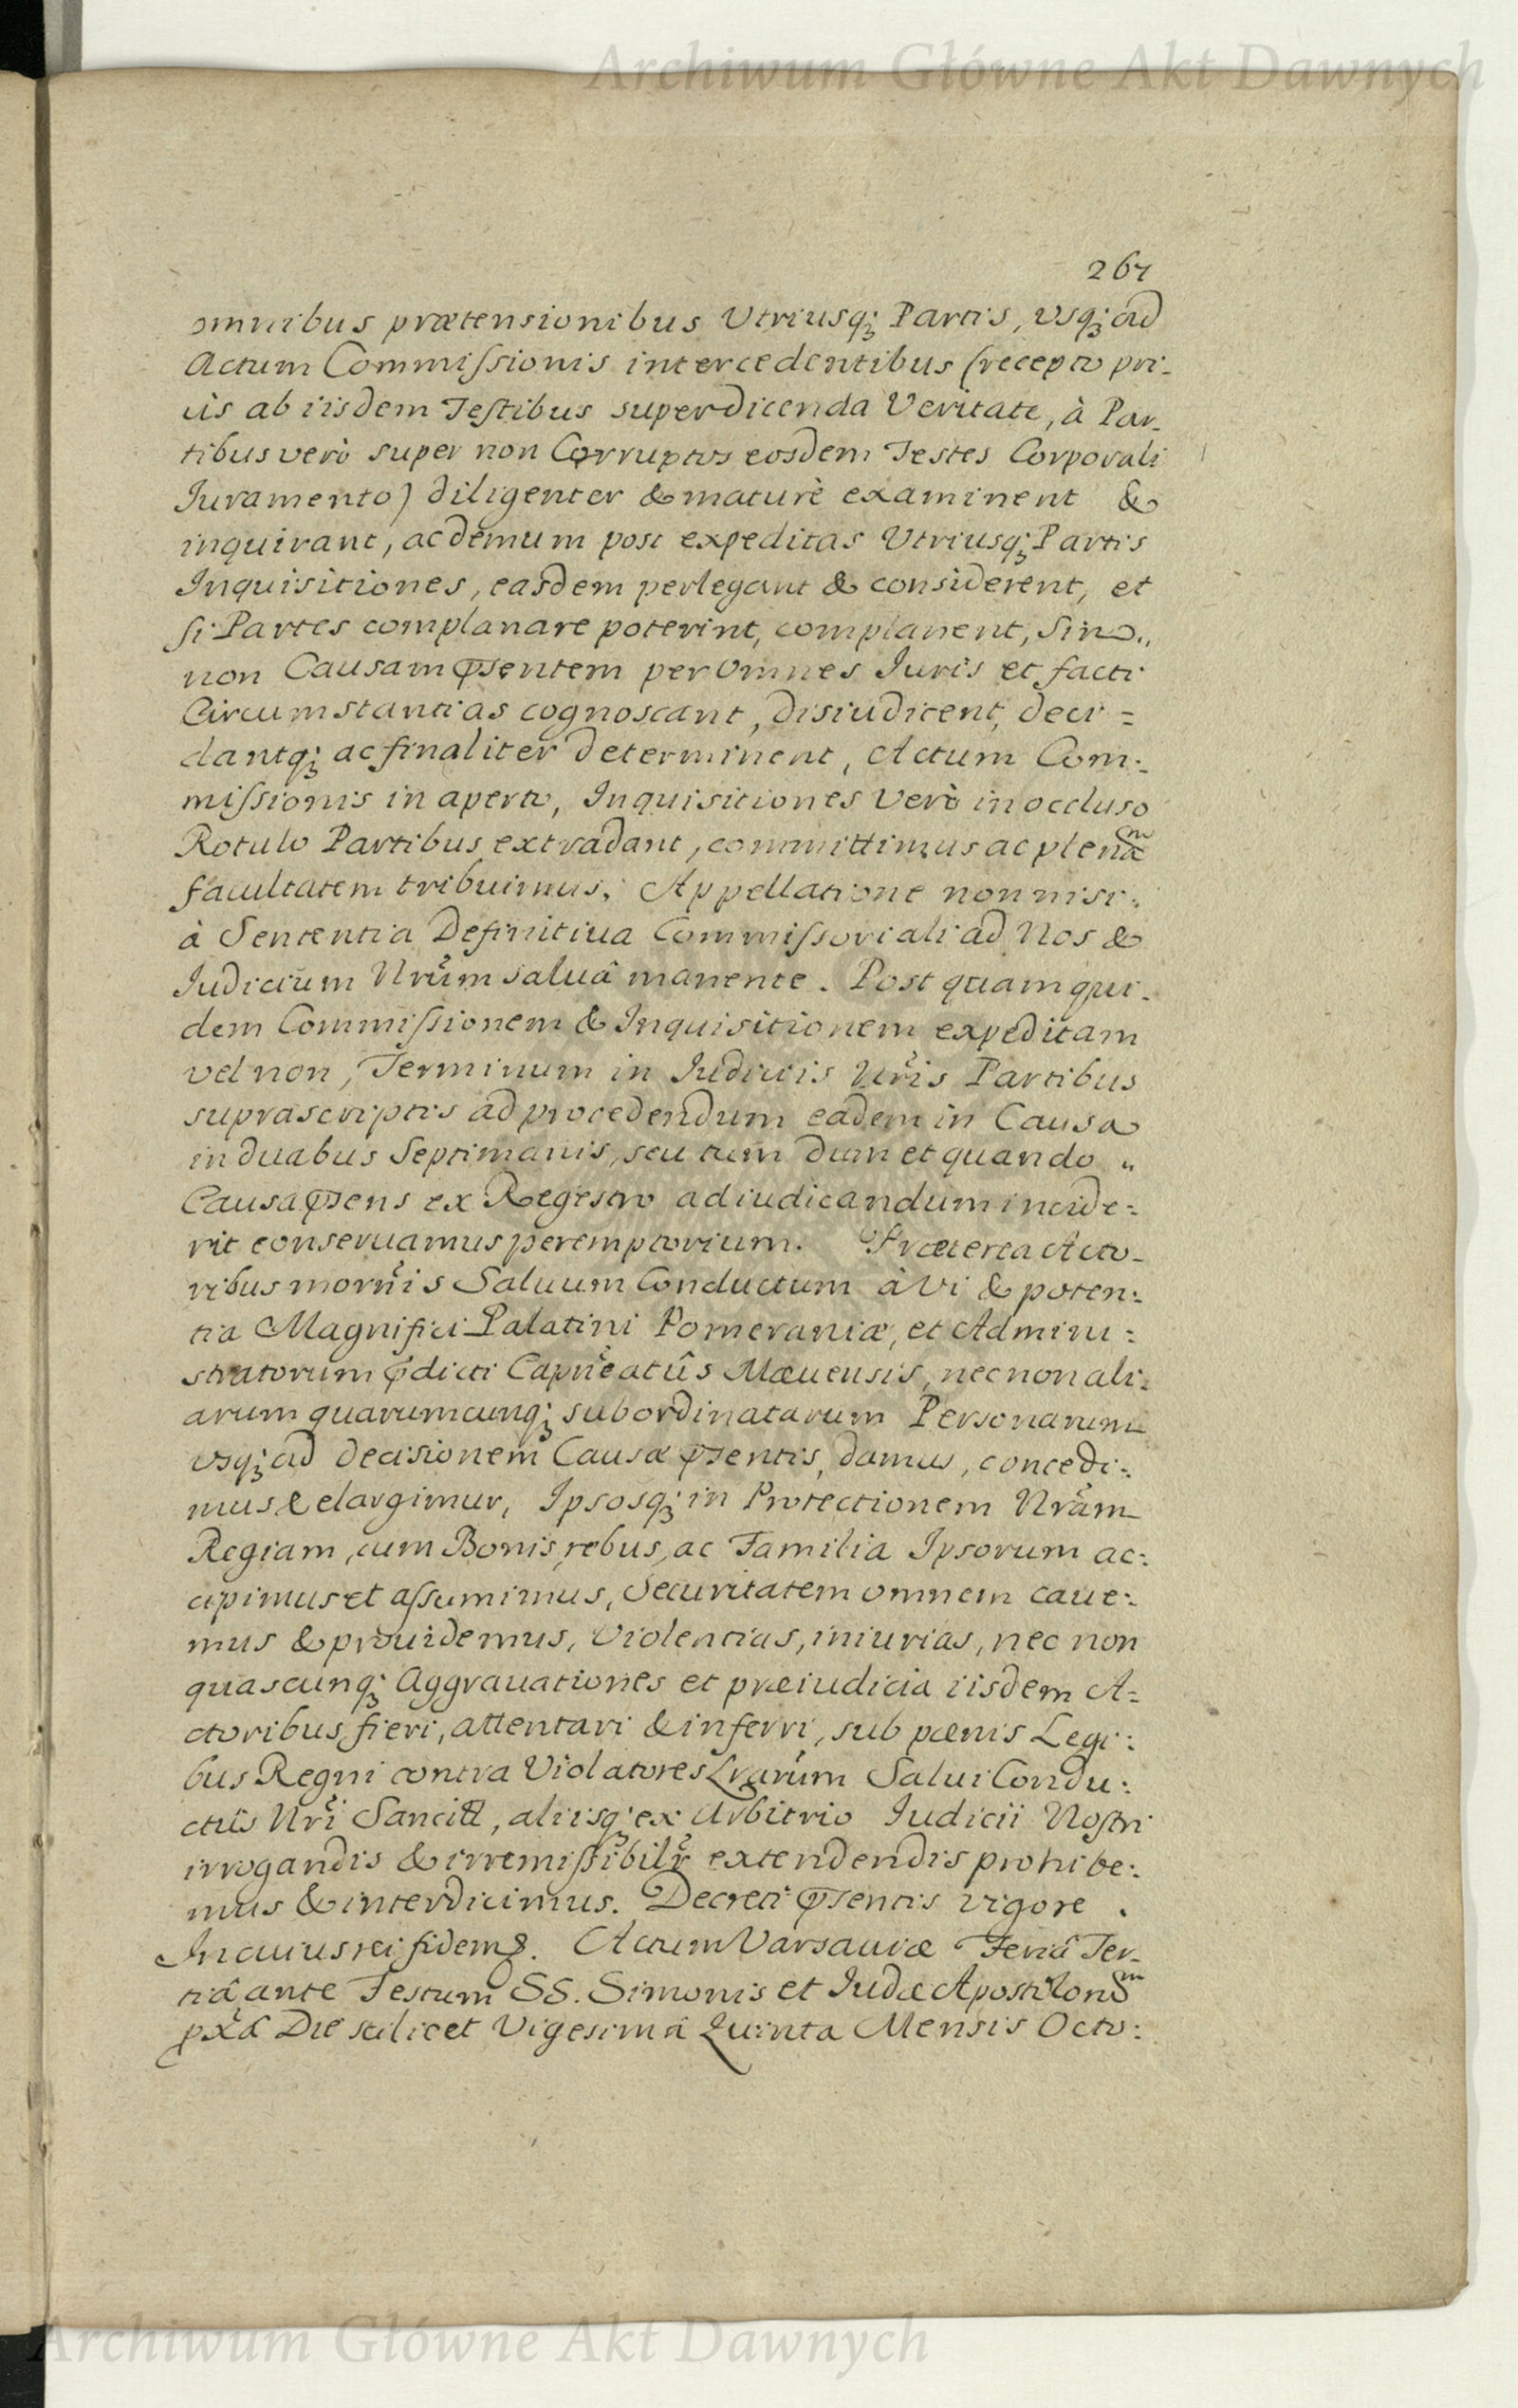 Archiwum Główne Akt Dawnych
267
omnibus prætensionibus Utriusq; Partis, usq; ad
Actum Commiſsionis intercedentibus (recepto pri-
ùs ab iisdem Teſtibus super dicenda Veritate, à Par-
tibus verò super non Corruptos eosdem Testes Corporali
Iuramento) diligenter & maturè examinent &
inquirant, ac demum post expeditas Utriusq; Partis
Inquisitiones, easdem perlegant & considerent, et
ſi Partes complanare poterint, complanent, Sin
non Causam p̄sentem per omnes Iuris et facti
Circumstantias cognoscant, disiudicent, deci=
dantq; ac finaliter determinent, Actum Com:
miſsionis in aperto, Inquisitiones Verò in occluso
Rotulo Partibus extradant, committimus ac plenam
facultatem tribuimus, Appellatione non nisi
à Sententia Definitiua Commiſsoriali ad Nos &
Iudicium Nrũm saluâ manente. Post quam qui-
dem Commiſsionem & Inquisitionem expeditam
vel non, Terminum in Iudiciis Nrĩs Partibus
suprascriptis ad procedendum eadem in Causa
in duabus Septimanis, seu tum dum et quando "
Causa p̄sens ex Regestro adiudicandum incide=
rit conseruamus peremptorium. Præterea Acto-
ribus mornĩs Saluum Conductum à Vi & poten:
tia Magnifici Palatini Pomeraniæ, et Admini=
stratorum p̄dicti Capnẽatûs Mæuensis, nec non ali:
arum quarumcunq; subordinatarum Personarum
usq; ad decisionem Causæ p̄sentis, damus, concedi:
mus & elargimur, Ipsosq; in Protectionem Nrãm
Regiam, cum Bonis, rebus, ac Familia Ipsorum ac:
cipimus et aſsumimus, Securitatem omnem caue:
mus & prouidemus, Violentias, iniurias, nec non
quascunq; Aggrauationes et præiudicia iisdem A=
ctoribus fieri, attentari & inferri, sub pœnis Legi:
bus Regni contra Violatores Lrarũm Salui Condu:
ctûs Nrĩ Sancitis, aliisq; ex Arbitrio Iudicii Noſtri
irrogandis & irremiſsibilr̃ extendendis prohibe:
mus & interdicimus. Decreti p̄sentis vigore.
In cuius rei fidem &. Actum Varsauiæ Feriâ Ter-
tiâ ante Festum SS. Simonis et Iudæ Apostolorum
pxã Die scilicet Vigesimâ Quinta Mensis Octo:
Archiwum Główne Akt Dawnych